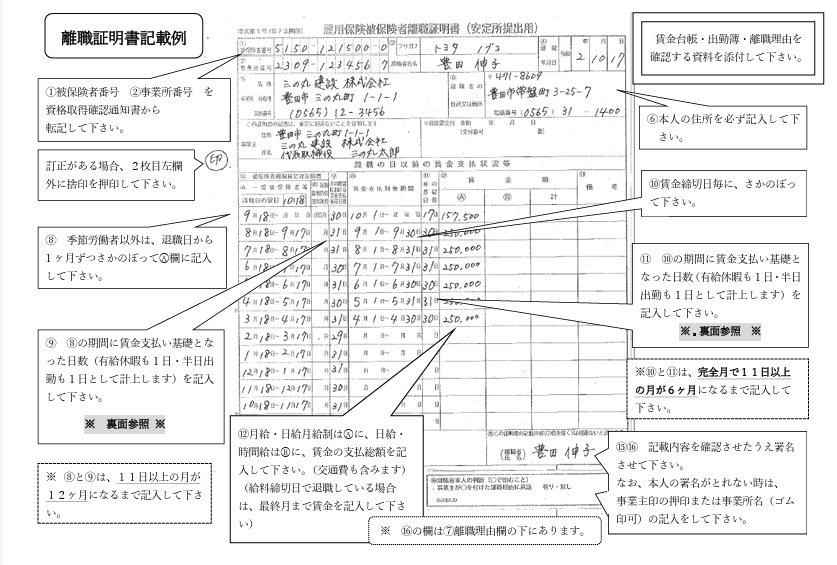 離職証明書記載例
様式第5号
雇用保険被保険者離職証明書（安定所提出用）
賃金台帳・出勤簿・離職理由を
確認する資料を添付して下さい。
①被保険者番号　②事業所番号　を
資格取得確認通知書から
転記して下さい。
訂正がある場合、２枚目左欄
外に捨印を押印して下さい。
印
⑧　季節労働者以外は、退職日から
１ヶ月ずつさかのぼってⒶ欄に記入
して下さい。
⑨　⑧の期間に賃金支払い基礎とな
った日数（有給休暇も１日・半日出
勤も１日として計上します）を記入
して下さい。
※　裏面参照　※
※　⑧と⑨は、１１日以上の月が
１２ヶ月になるまで記入して下さ
い。
5150-121500-0
2309-123456 7
フリガナ
トヨタ　ノブコ
豊田　伸子
2 10 17
三の丸建設　株式会社
豊田市　三の丸町　1-1-1
(0565) 12-3456
〒471-8609
豊田市常盤町3-25-7
電話番号 (0565) 31 - 1400
住所　豊田市三の丸町1-1-1
三の丸建設　株式会社
氏名　代表取締役　三の丸太郎
離職の日以前の賃金支払状況等
賃金支払対象期間
賃金額
Ⓐ　Ⓑ　計
離職日の翌日　10月18
9月18日～　30日　10月1日～　17日　157,500
8月18日～9月17日　31日　9月1日～9月30日　30日　250,000
7月18日～8月17日　31日　8月1日～8月31日　31日　250,000
6月18日～7月17日　30日　7月1日～7月31日　31日　250,000
5月18日～6月17日　31日　6月1日～6月30日　30日　250,000
4月18日～5月17日　30日　5月1日～5月31日　31日　250,000
3月18日～4月17日　31日　4月1日～4月30日　30日　250,000
2月18日～3月17日　29日
1月18日～2月17日　31日
12月18日～1月17日　31日
11月18日～12月17日　30日
10月18日～11月17日　31日
⑥本人の住所を必ず記入して下
さい。
⑩賃金締切日毎に、さかのぼっ
て下さい。
⑪　⑩の期間に賃金支払い基礎と
なった日数（有給休暇も１日・半日
出勤も１日として計上します）を
記入して下さい。
※．裏面参照　※
※⑩と⑪は、完全月で１１日以上
の月が６ヶ月になるまで記入して
下さい。
⑫月給・日給月給制はⒶに、日給・
時間給はⒷに、賃金の支払総額を記
入して下さい。（交通費も含みます）
（給料締切日で退職している場合
は、最終月まで賃金を記入して下さ
い）
豊田　伸子
有り・無し
⑮⑯　記載内容を確認させたうえ署名
させて下さい。
なお、本人の署名がとれない時は、
事業主印の押印または事業所名（ゴム
印可）の記入をして下さい。
※　⑯の欄は⑦離職理由欄の下にあります。